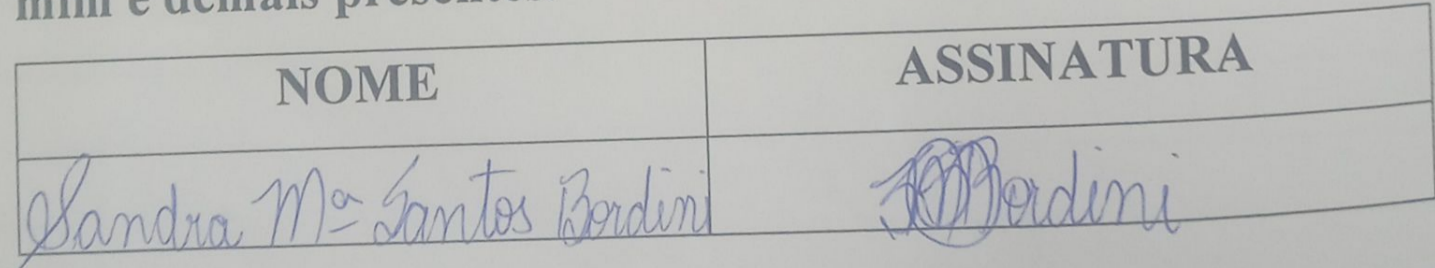 mim e demais
NOME ASSINATURA
Sandra Mª Santos Bordini Bordini